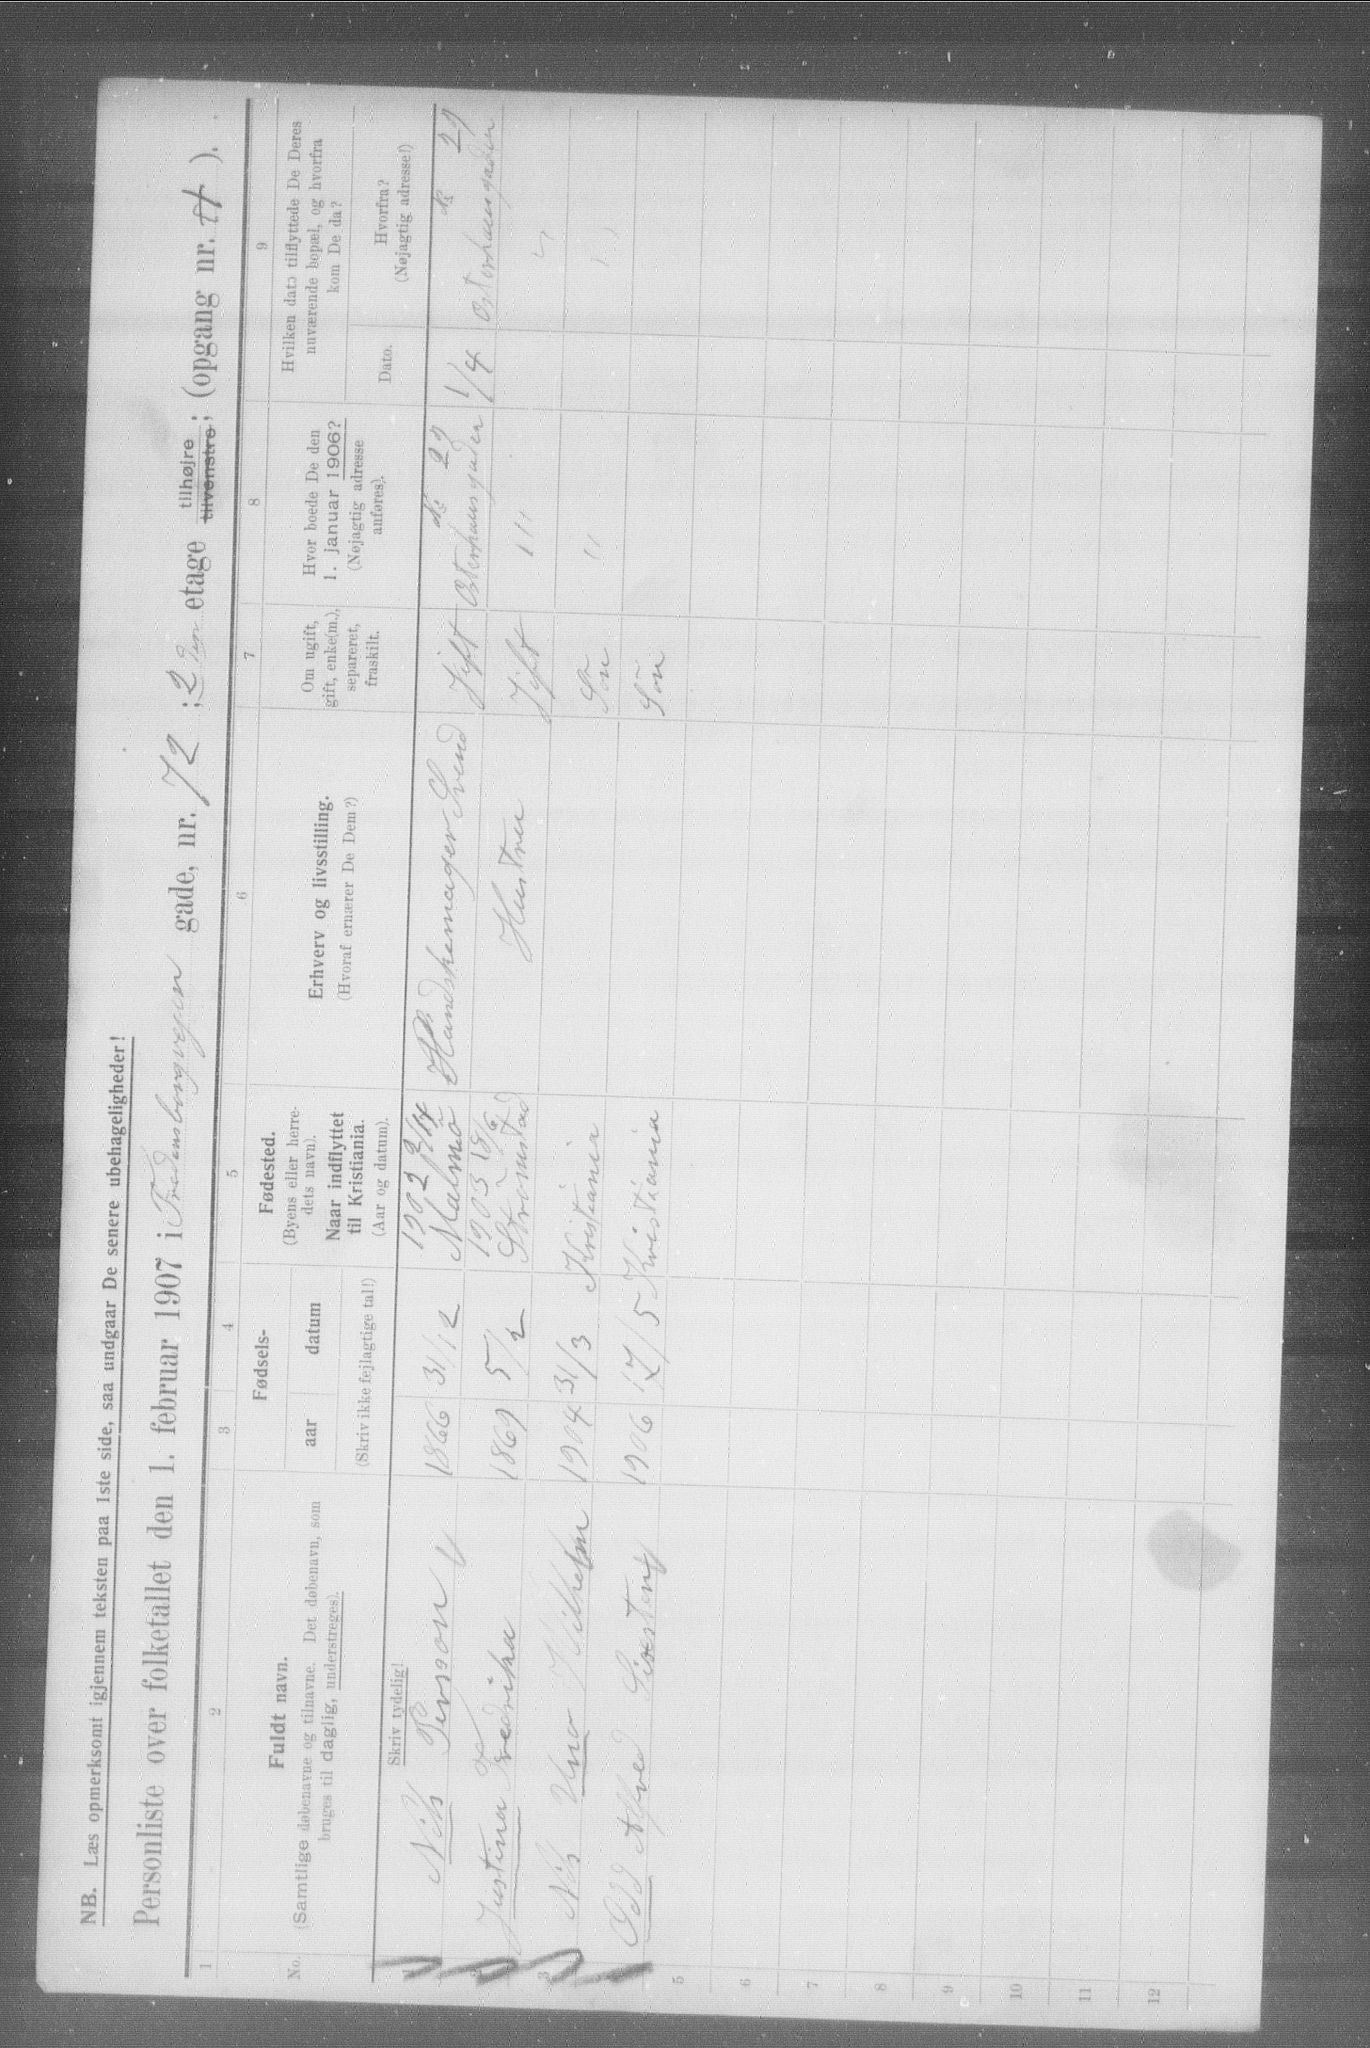 NB. Læs opmerksomt igjennem teksten paa 1ste side, saa undgaar De senere ubehageligheder!
Personliste over folketallet den 1. februar 1907 i Fredensborgvejen gade, nr. 72 ; 2den etage tilhøjre ; (opgang nr. ).
tilvenstre ;
1 2 3 4 5 6 7 8 9
No.
Fuldt navn.
(Samtlige døbenavne og tilnavne. Det døbenavn, som
bruges til daglig, understreges).
Skriv tydelig!
Fødsels-
aar datum
(Skriv ikke fejlagtige tal!)
Fødested.
(Byens eller herre-
dets navn).
Naar indflyttet
til Kristiania.
(Aar og datum).
Erhverv og livsstilling.
(Hvoraf ernærer De Dem?)
Om ugift,
gift, enke(m.),
separeret,
fraskilt.
Hvor boede De den
1. januar 1906?
(Nøjagtig adresse
anføres).
Hvilken dato tilflyttede De Deres
nuværende bopæl, og hvorfra
kom De da?
Dato.
Hvorfra?
(Nøjagtig adresse!)
1 Nils Person 1866 31/12 1902 3/4 Malmö Handskemager Svend Gift Osterhausgaden № 29 1/4 Osterhausgaden № 29
2 Justina Fredrika 1869 5/2 1903 18/6 Strömstad Hustru Gift " "
3 Nils Uno Vilhelm 1904 31/3 Kristiania Søn " "
4 Odd Alfred 1906 17/5 Kristiania Søn
5
6
7
8
9
10
11
12